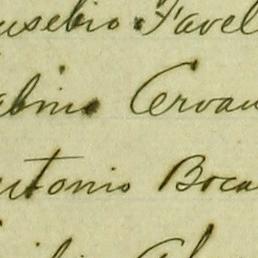 usebio Favel
abino Cervan
ntonio Boca